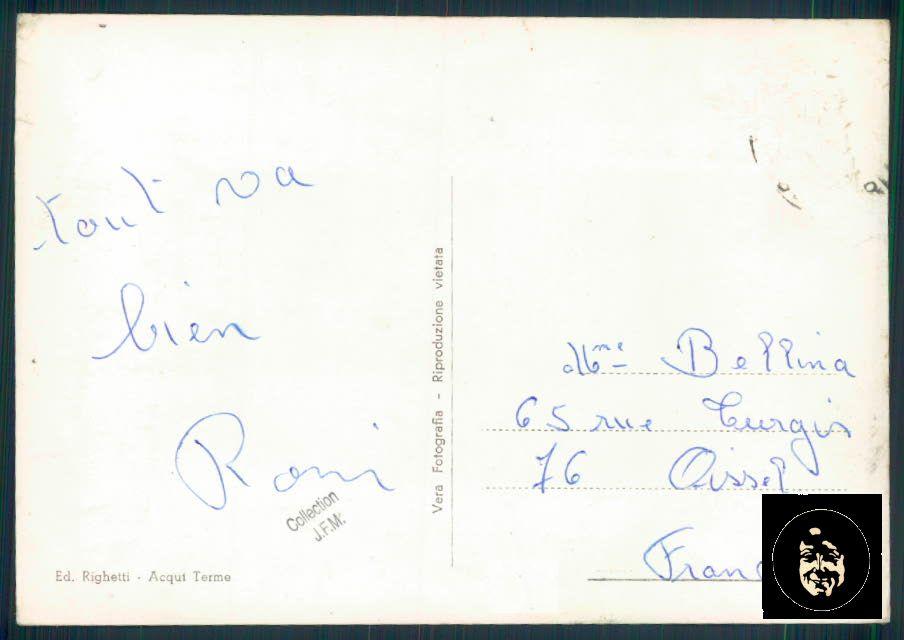 tout va
bien
Roni
Collection
J.F.M.
Ed. Righetti - Acqui Terme
Vera Fotografia - Riproduzione vietata
Mme Bellina
65 rue Turgis
76 Oissel